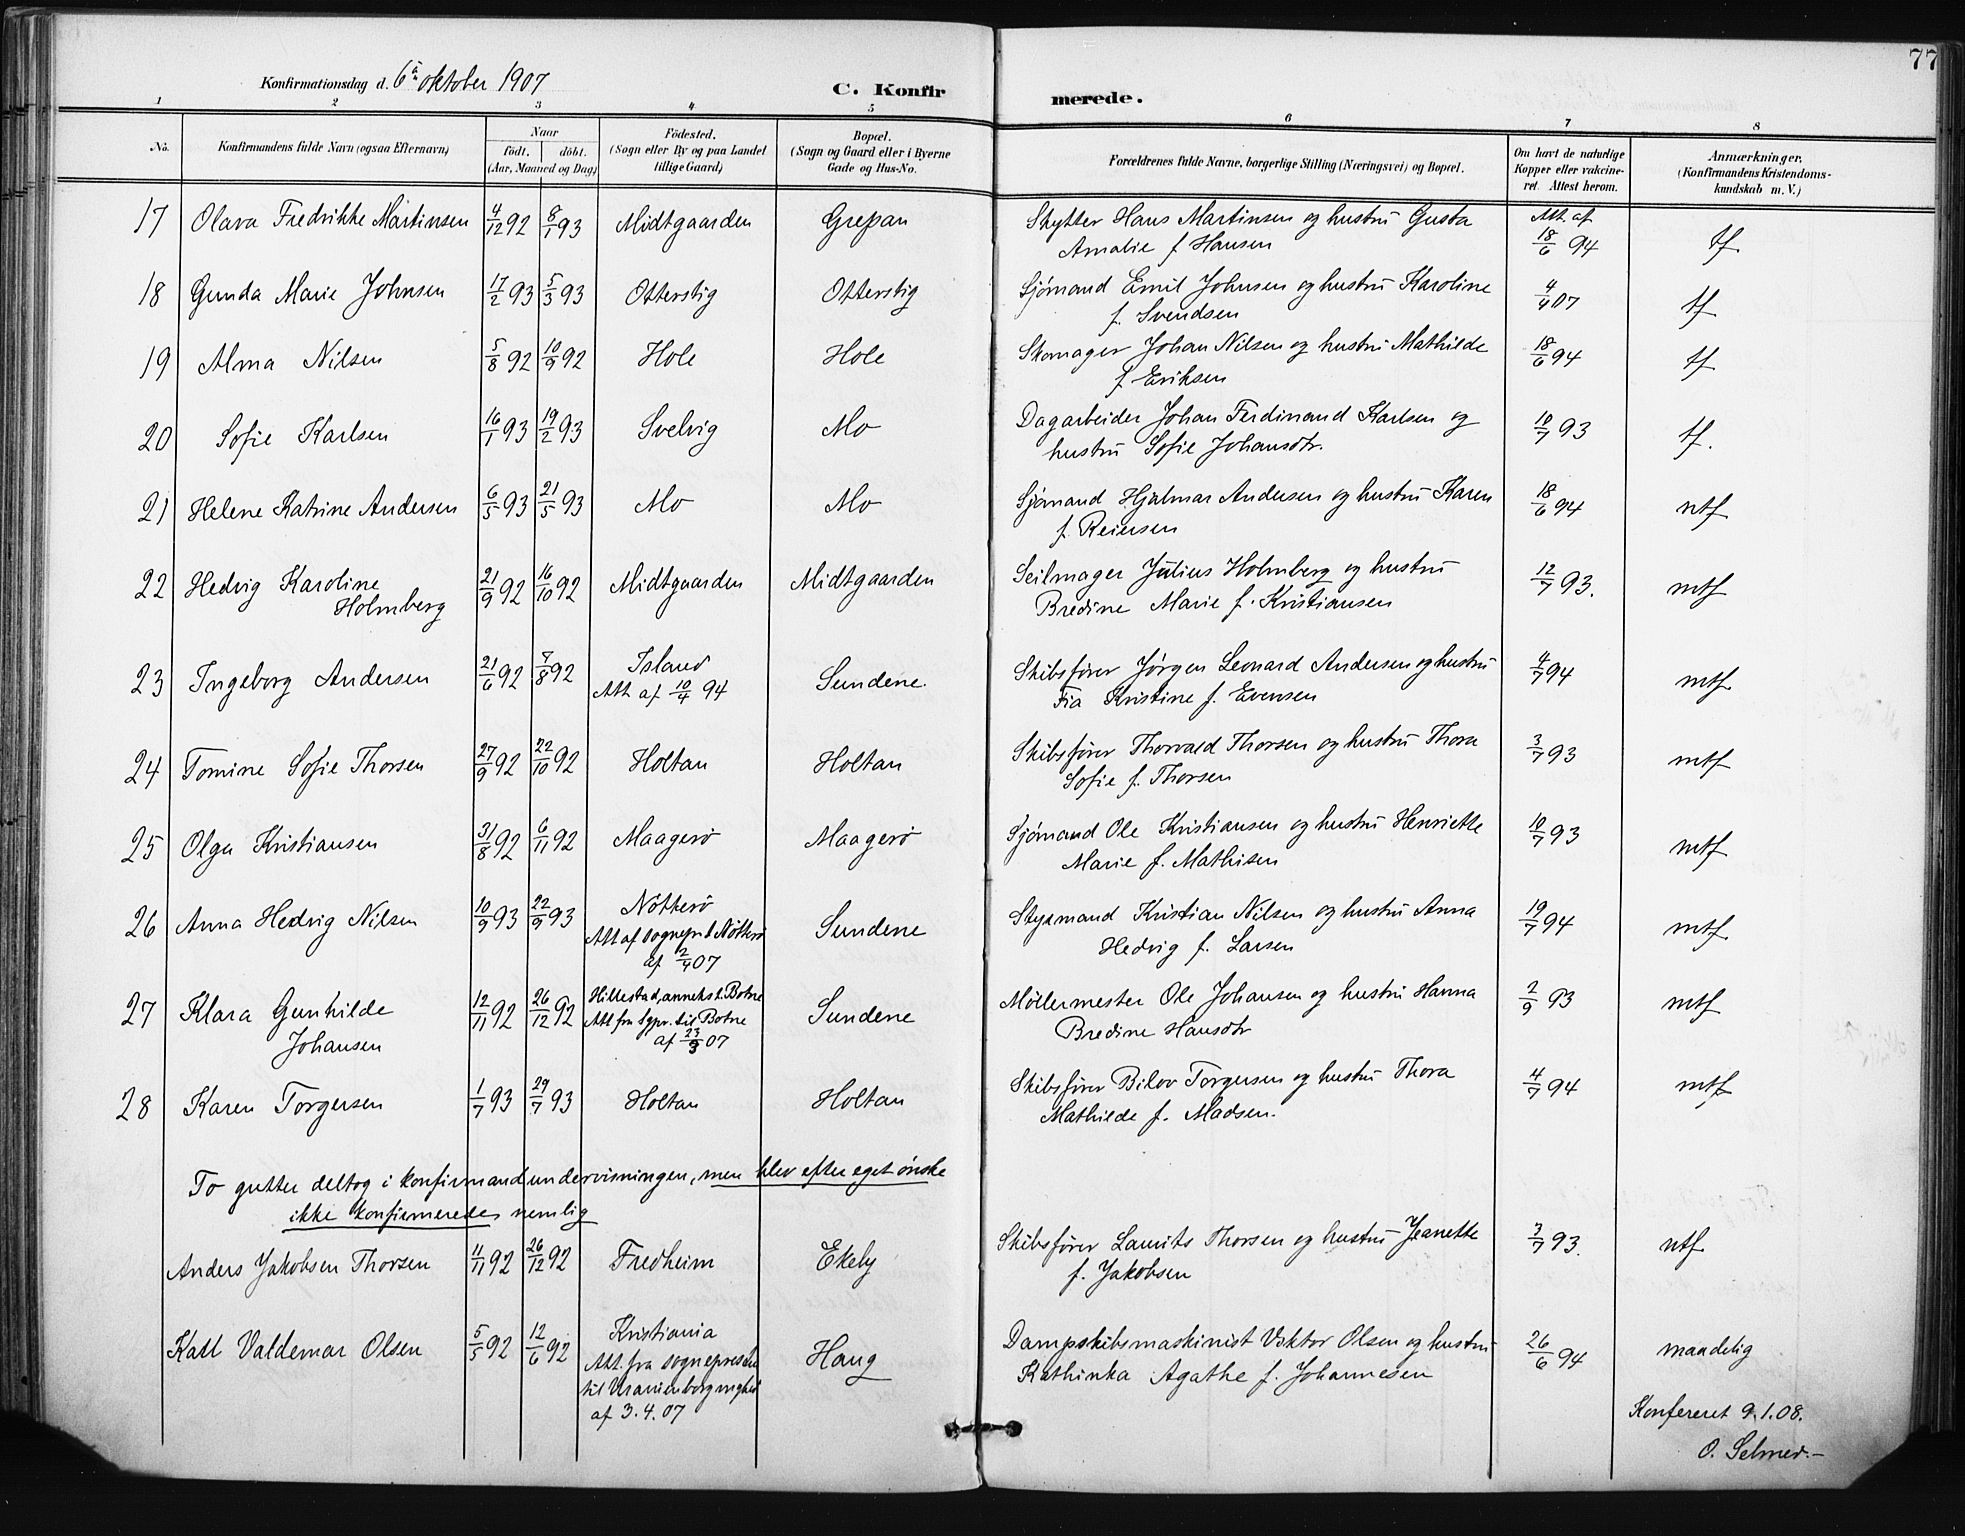 77
Konfirmationsdag d. 6te oktober 1907
C. Konfirmerede.
1 2 3 4 5 6 7 8
No. Konfirmandens fulde Navn (ogsaa Efternavn) Naar født. døbt. (Aar, Maaned og Dag) Födested. (Sogn eller By og paa Landet tillige Gaard) Bopæl. (Sogn og Gaard eller i Byerne Gade og Hus-No. Forældrenes fulde Navne, borgerlige Stilling (Næringsvei) og Bopæl. Om havt de naturlige Kopper eller vakcineret. Attest herom. Anmærkninger. (Konfirmandens Kristendomskundskab m. V.)
17 Olava Fredrikke Martinsen 4/12 92 8/1 93 Midtgaarden Grepan Skytter Hans Martinsen og hustru Gusta Att. af
Amalie f. Hansen 18/6 94 tf
18 Gunda Marie Johnsen 17/2 93 5/3 93 Otterstig Otterstig Sjømand Emil Johnsen og hustru Karoline 4/4 07 tf
f. Svendsen
19 Alma Nilsen 5/8 92 10/9 92 Hole Hole Skomager Johan Nilsen og hustru Mathilde 18/6 94 tf
f. Eriksen
20 Sofie Karlsen 16/1 93 19/2 93 Svelvig Mo Dagarbeider Johan Ferdinand Karlsen og 10/7 93 tf.
hustru Sofie Johansdtr.
21 Helene Katrine Andersen 6/5 93 21/5 93 Mo Mo Sjømand Hjalmar Andersen og hustru Karen 18/6 94 ntf
f. Reiersen
22 Hedvig Karoline 21/9 92 16/10 92 Midtgaarden Midtgaarden Seilmager Julius Holmberg og hustru 12/7 93. mtf
Holmberg Bredine Marie f. Kristiansen
23 Ingeborg Andersen 21/6 92 7/8 92 Island Sundene. Skibsfører Jørgen Leonard Andersen og hustru 4/7 94 mtf
Att af 10/4 94 Fia Kristine f. Evensen
24 Tomine Sofie Thorsen 27/9 92 22/10 92 Holtan Holtan Skibsfører Thorvald Thorsen og hustru Thora 3/7 93 mtf
Sofie f. Thorsen
25 Olga Kristiansen 31/8 92 6/11 92 Maagerø Maagerø Sjømand Ole Kristiansen og hustru Henriette 10/7 93 mtf
Marie f. Mathisen
26 Anna Hedvig Nilsen 10/9 93 22/9 93 Nötterö Sundene Styrmand Kristian Nilsen og hustru Anna 19/7 94 mtf
Att af sognepr. t. Nötterø Hedvig f. Larsen
af 2/4 07
27 Klara Gunhilde 12/11 92 26/12 92 Hillestad, anneks t. Botne Sundene Møllermester Ole Johansen og hustru Hanna 2/9 93 mtf
Johansen Att fra Sgpr. til Botne Bredine Hansdtr
af 23/3 07
28 Karen Torgersen 1/7 93 29/7 93 Holtan Holtan Skibsfører Bilov Torgersen og hustru Thora 4/7 94 mtf
Mathilde f. Madsen.
To gutter deltog i konfirmandundervisningen, men blev efter eget ønske
ikke konfirmerede nemlig
Anders Jakobsen Thorsen 11/11 92 26/12 92 Fredheim Ekeby Skibsfører Laurits Thorsen og hustru Jeanette 3/7 93. ntf
f. Jakobsen
Karl Valdemar Olsen 5/5 92 12/6 92 Kristiania Haug Dampskibsmaskinist Viktor Olsen og hustru 26/6 94 maadelig
Att. fra sognepresten Kathinka Agathe f. Johannesen
til Uranienborg mghed
af 3.4.07
Konfereret 9.1.08.
O. Selmer.-